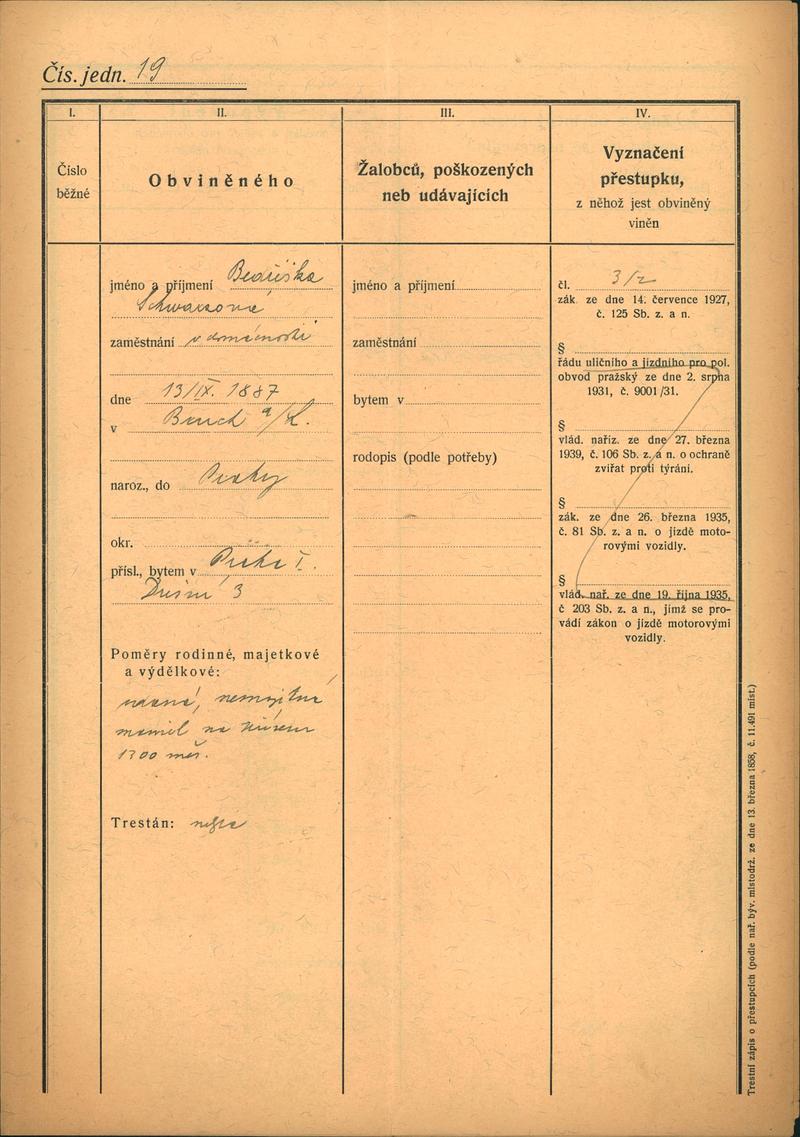 Čís. jedn. 19
I.
Číslo
běžné
II.
Obviněného
III.
Žalobců, poškozených
neb udávajících
IV.
Vyznačení
přestupku,
z něhož jest obviněný
viněn
jméno a příjmení Bedřiška
Schwarzová
zaměstnání v domácnosti
dne 13/IX. 1887
v
naroz., do Prahy
okr.
přísl., bytem v Praha I.
Dušní 3
Poměry rodinné, majetkové
a výdělkové:
vdaná, nemajetná
manžel na
1300 měs.
Trestán:
jméno a příjmení
zaměstnání
bytem v
rodopis (podle potřeby)
čl. 3/2
zák. ze dne 14. července 1927,
č. 125 Sb. z. a n.
§
řádu uličního a jízdního pro pol.
obvod pražský ze dne 2. srpna
1931, č. 9001/31.
§
vlád. naříz. ze dne 27. března
1939, č. 106 Sb. z. a n. o ochraně
zvířat proti týrání.
§
zák. ze dne 26. března 1935,
č. 81 Sb. z. a n. o jízdě moto-
rovými vozidly.
§
vlád. nař. ze dne 19. října 1935,
č 203 Sb. z. a n., jímž se pro-
vádí zákon o jízdě motorovými
vozidly.
Trestní zápis o přestupcích (podle nař. býv. místodrž. ze dne 13. března 1858, č. 11.491 míst.)